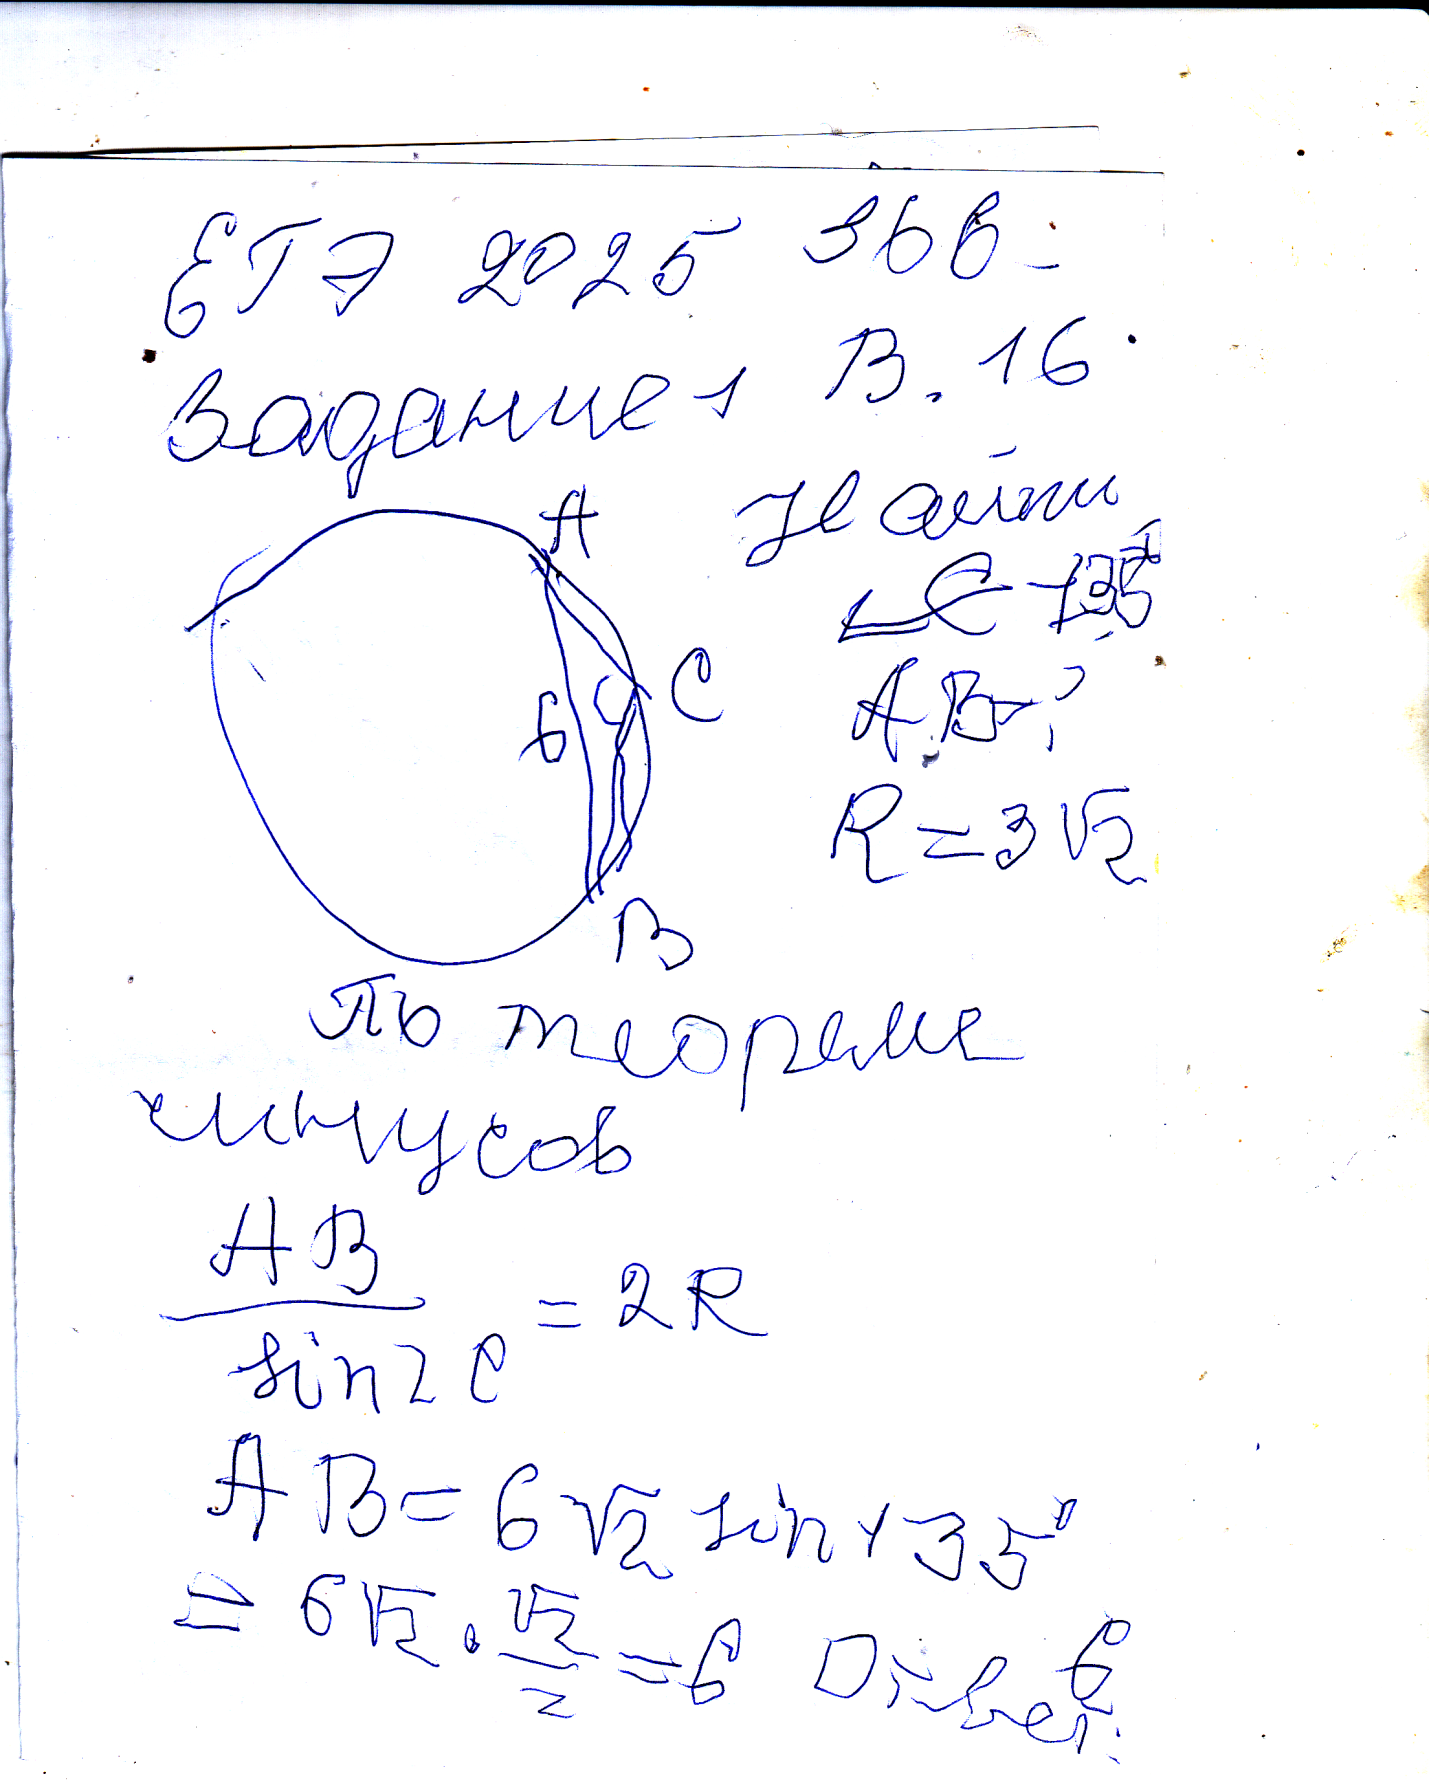 ЕГЭ 2025 36 в.
Задание 1 В. 16
A
Найти
∠C = 135°
C
AB - ?
6
R = 3√2
B
По теореме
синусов
AB / sin∠C = 2R
AB = 6√2 sin 135°
= 6√2 · √2/2 = 6 Ответ: 6